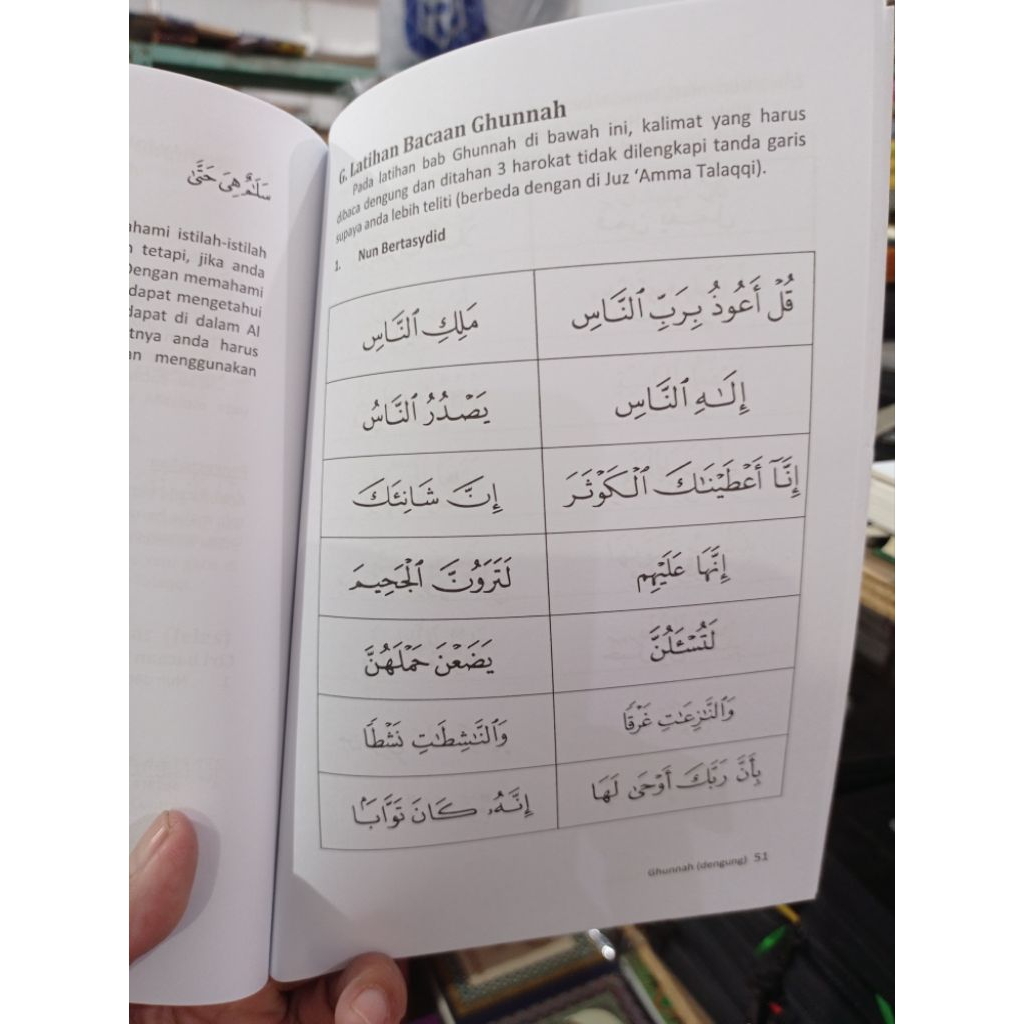 سَلَٰمٌ هِيَ حَتَّىٰ
istilah-istilah
tetapi, jika anda
Dengan memahami
dapat mengetahui
dapat di dalam Al
anda harus
menggunakan
G. Latihan Bacaan Ghunnah
Pada latihan bab Ghunnah di bawah ini, kalimat yang harus
dibaca dengung dan ditahan 3 harokat tidak dilengkapi tanda garis
supaya anda lebih teliti (berbeda dengan di Juz ‘Amma Talaqqi).
1. Nun Bertasydid
قُلْ أَعُوذُ بِرَبِّ ٱلنَّاسِ
مَلِكِ ٱلنَّاسِ
إِلَٰهِ ٱلنَّاسِ
يَصْدُرُ ٱلنَّاسُ
إِنَّآ أَعْطَيْنَٰكَ ٱلْكَوْثَرَ
إِنَّ شَانِئَكَ
إِنَّهَا عَلَيْهِم
لَتَرَوُنَّ ٱلْجَحِيمَ
لَتُسْـَٔلُنَّ
يَضَعْنَ حَمْلَهُنَّ
وَٱلنَّٰزِعَٰتِ غَرْقًا
وَٱلنَّٰشِطَٰتِ نَشْطًا
بِأَنَّ رَبَّكَ أَوْحَىٰ لَهَا
إِنَّهُۥ كَانَ تَوَّابًۢا
Ghunnah (dengung) 51